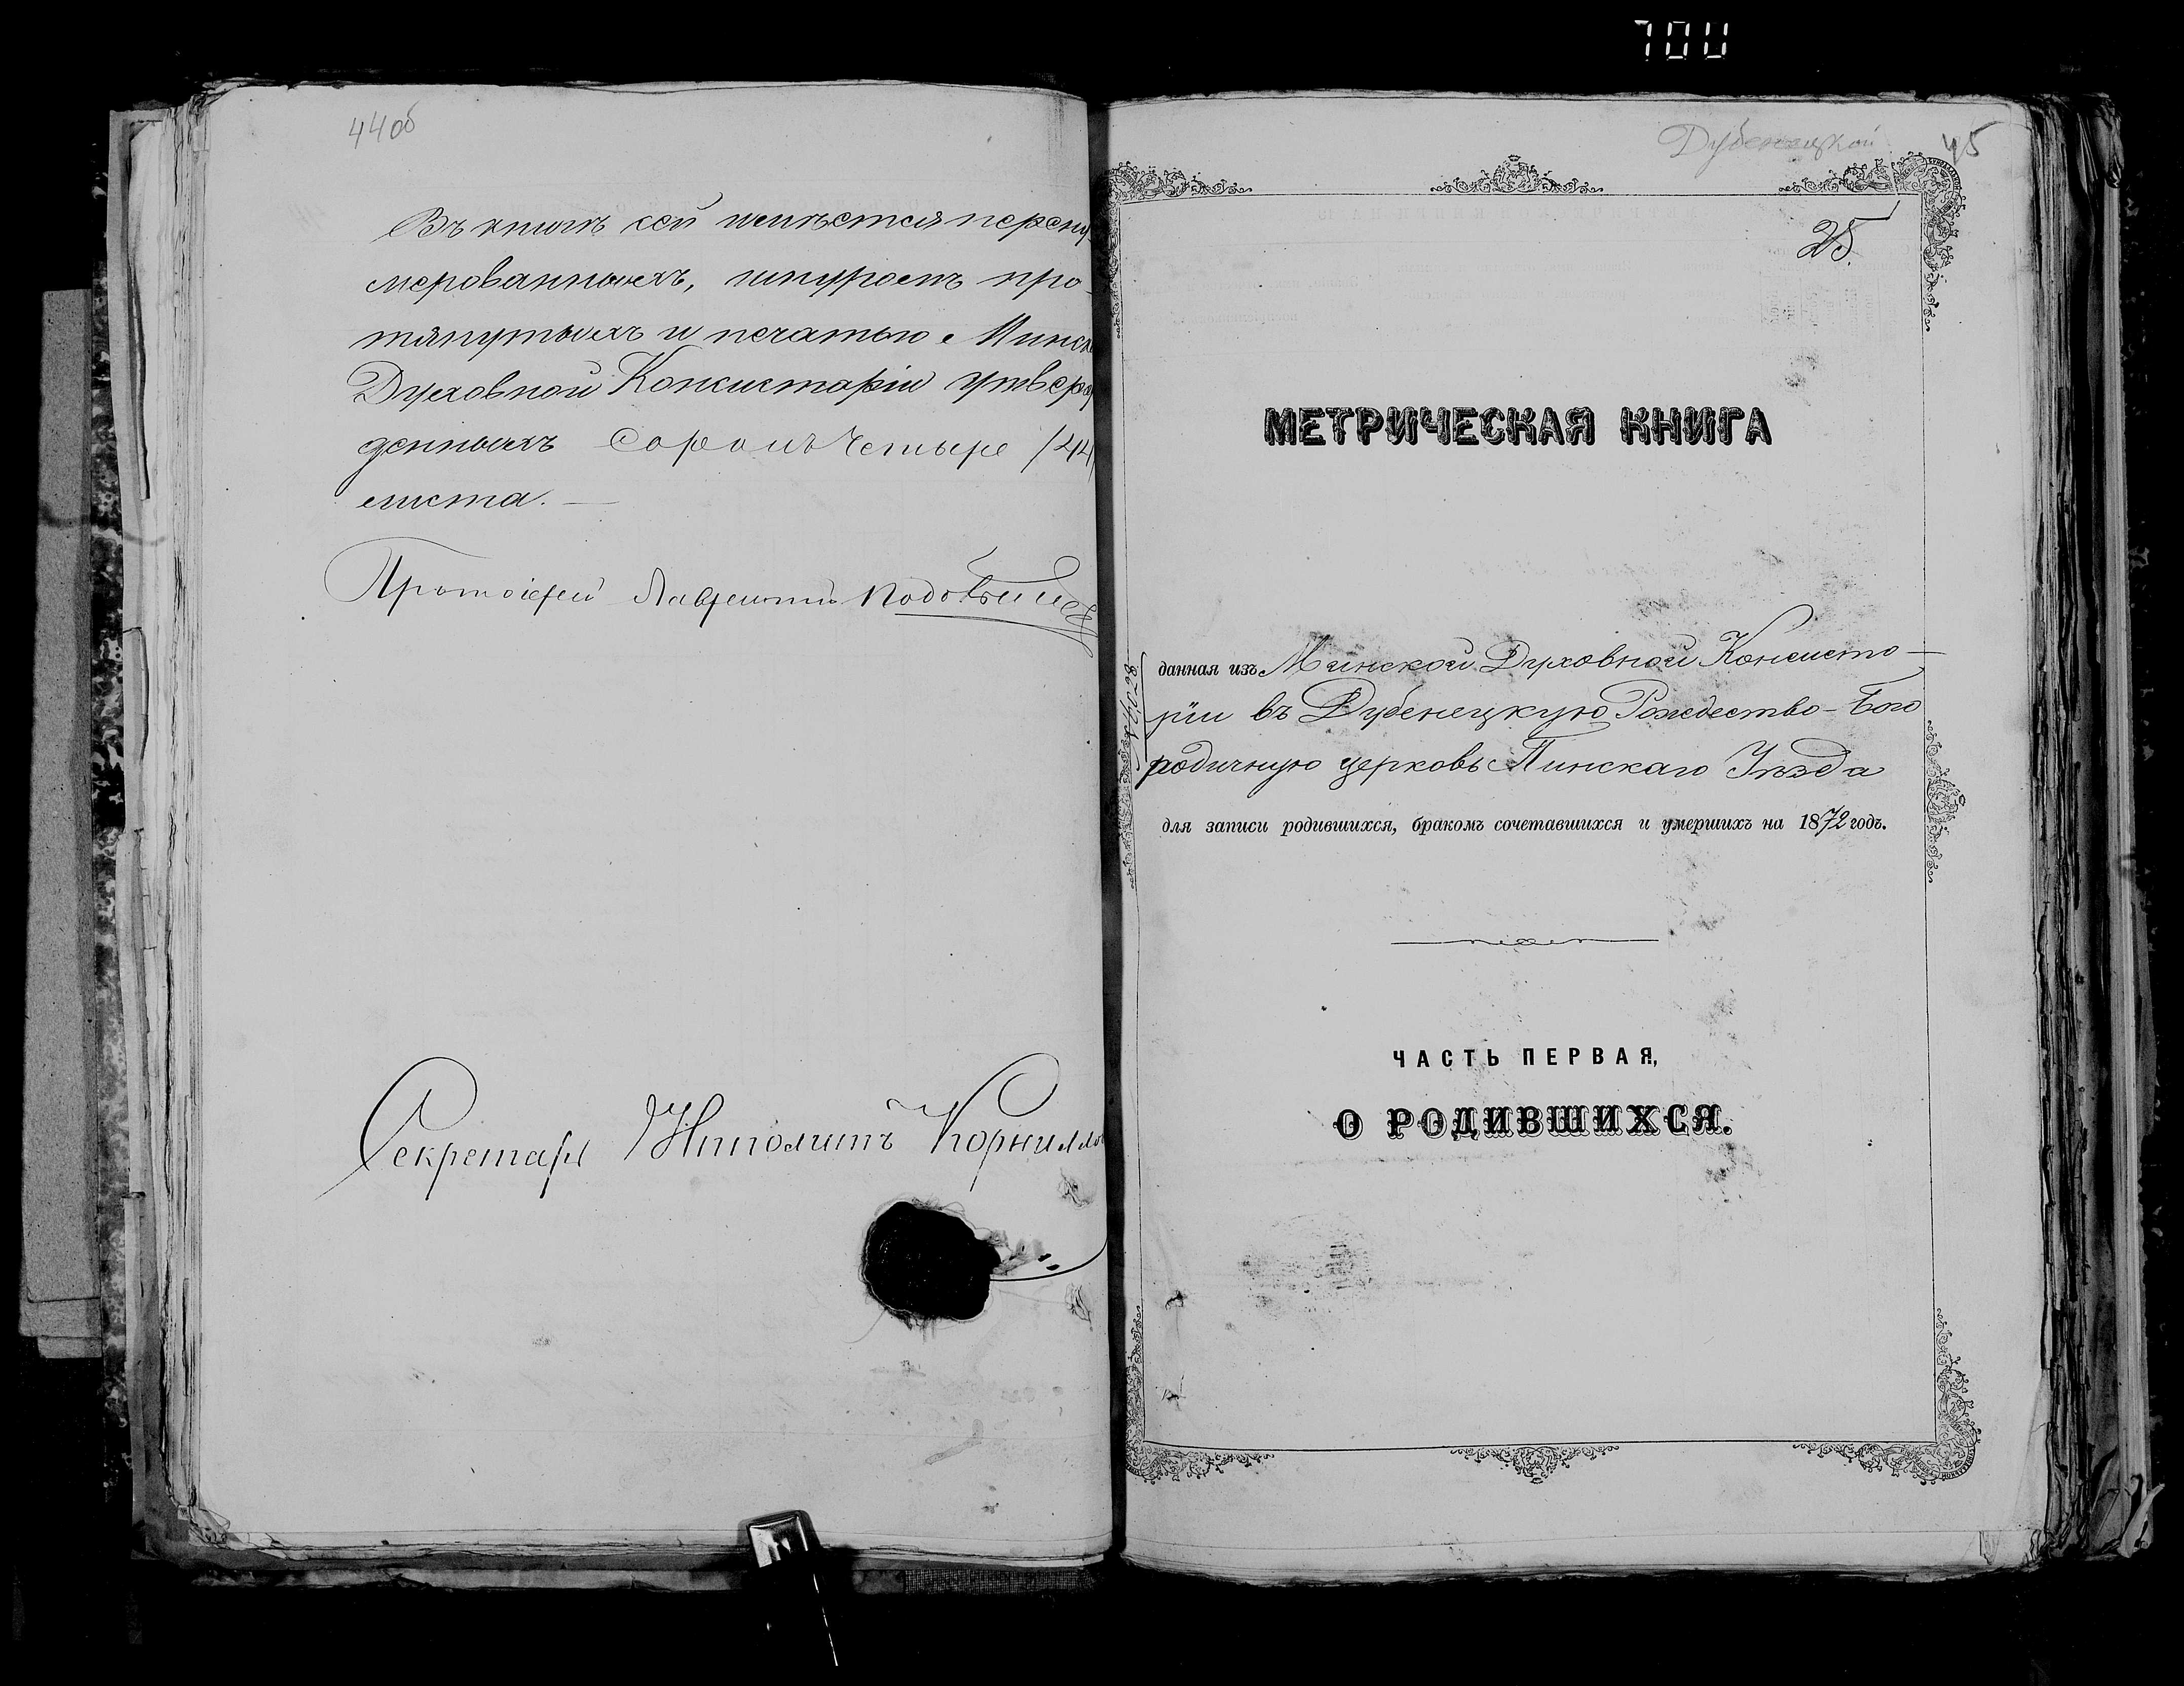 700
44об
Въ книгѣ сей имѣется перену-
мерованныхъ, шнуромъ про-
тянутыхъ и печатью Минск
Духовной Консисторіи утверж
денныхъ сорокъ четыре /44/
листа. —
Протоіерей Лаврентій
Секретарь Ипполитъ Корнилло
Дубенецкой 45
25.
МЕТРИЧЕСКАЯ КНИГА
данная изъ Минской Духовной Консисто-
ріи въ Дубенецкую Рождество-Бого
родичную церковь Пинскаго Уѣзда
для записи родившихся, бракомъ сочетавшихся и умершихъ на 1872 годъ.
ЧАСТЬ ПЕРВАЯ,
О РОДИВШИХСЯ.